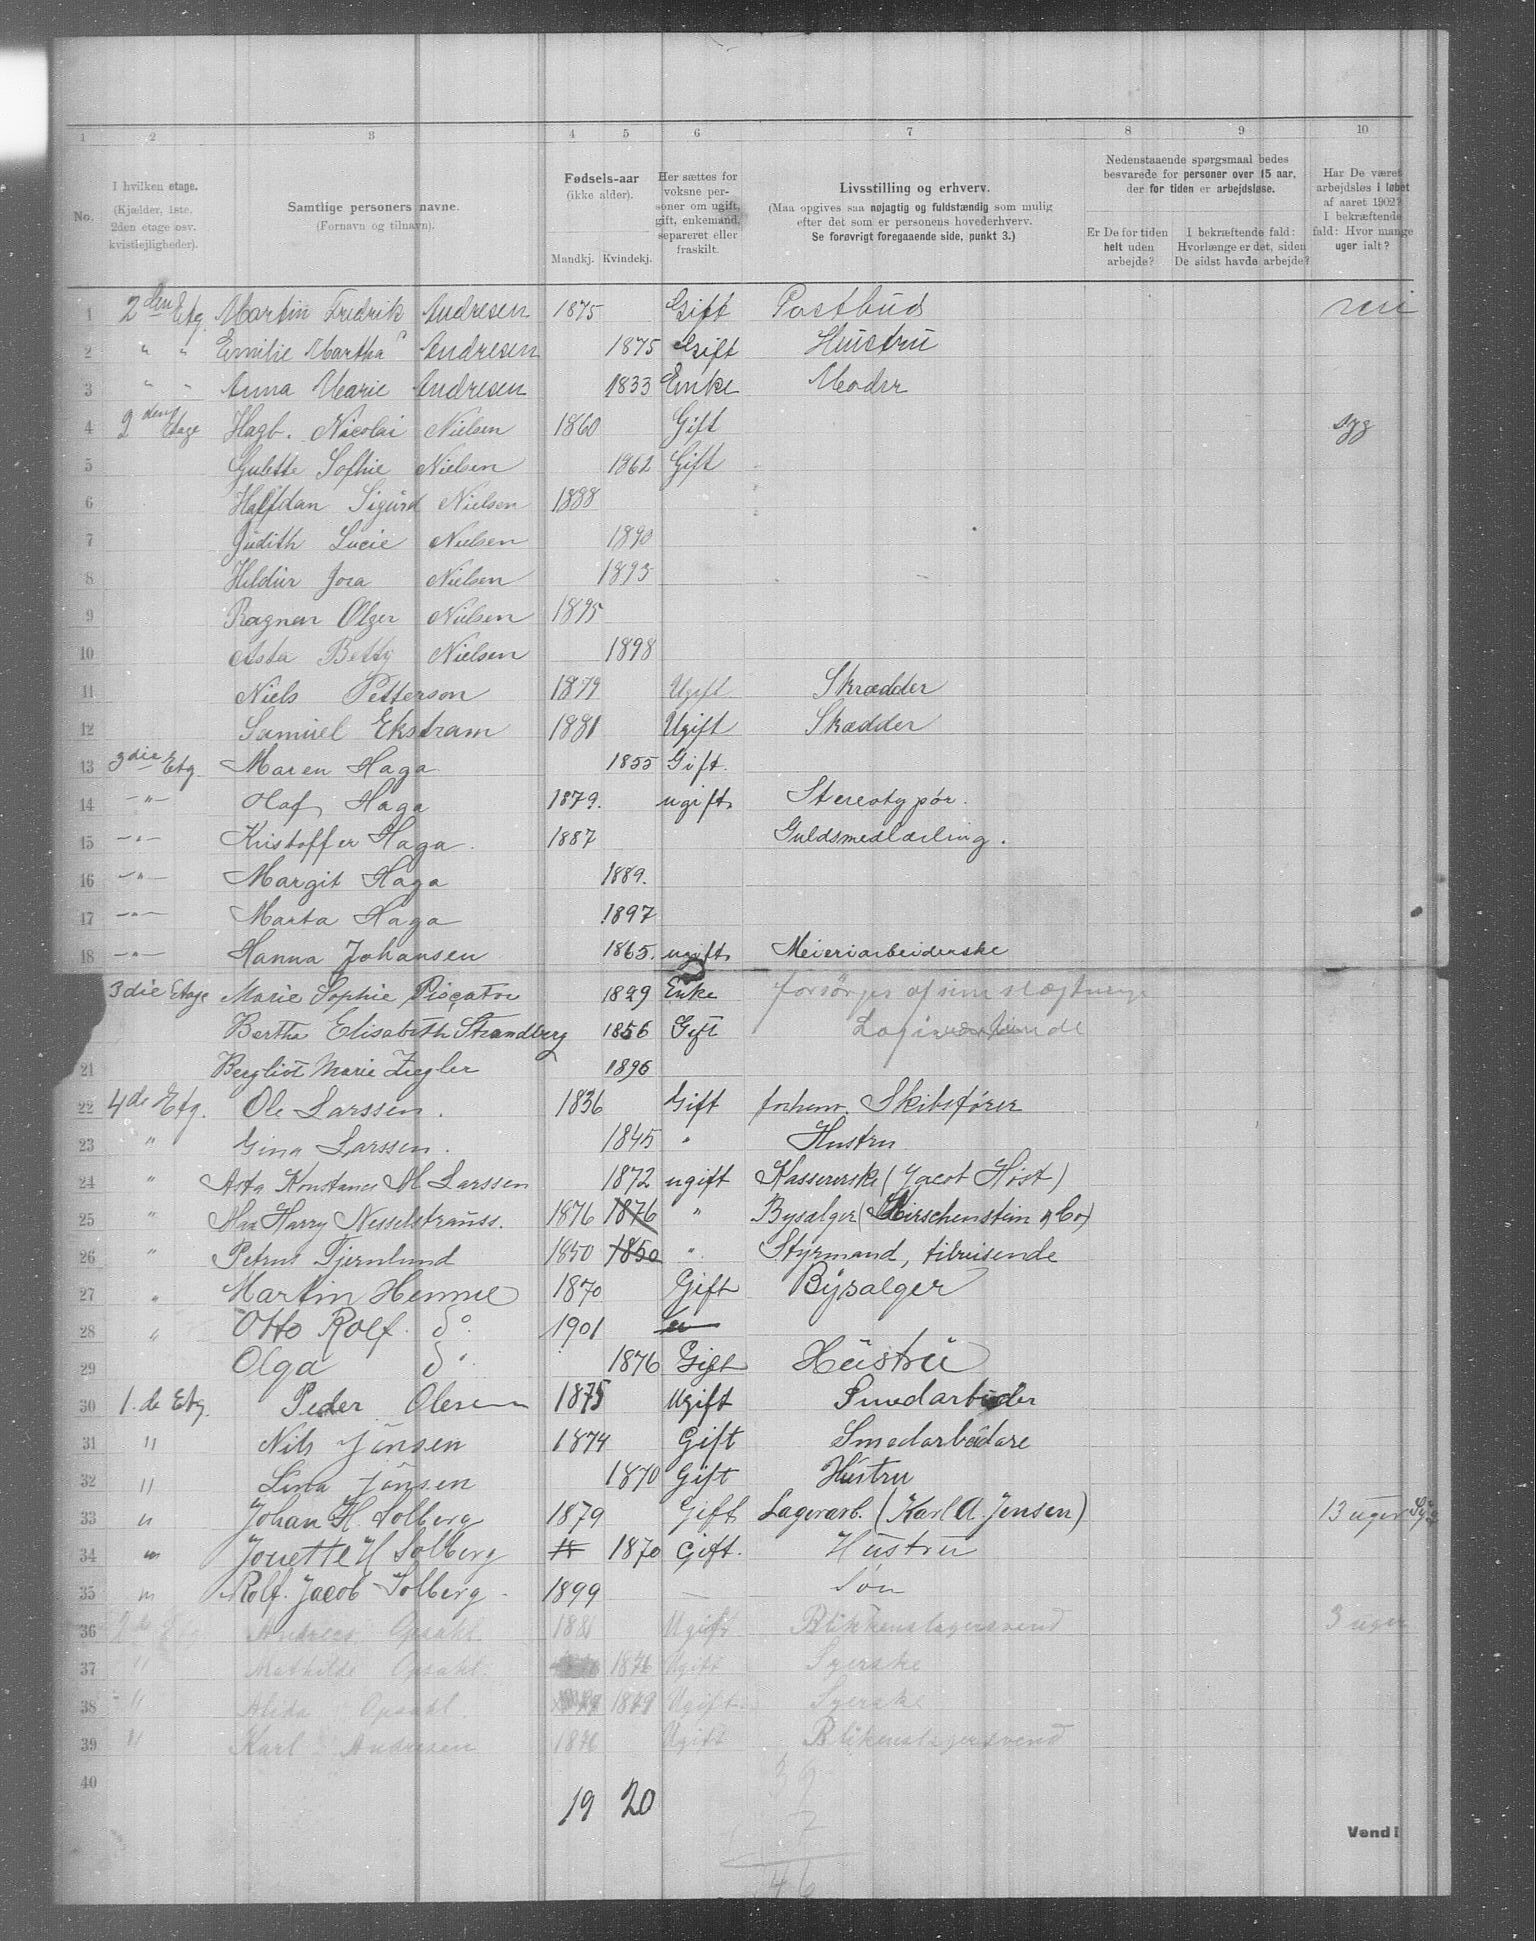 1 2 3 4 5 6 7 8 9 10
No.
I hvilken etage. (Kjælder, 1ste, 2den etage osv. kvistleiligheder).
Samtlige personers navne. (Fornavn og tilnavn).
Fødsels-aar (ikke alder). Mandkj. Kvindekj.
Her sættes for voksne personer om ugift, gift, enkemand, separeret eller fraskilt.
Livsstilling og erhverv. (Maa opgives saa nøjagtig og fuldstændig som mulig efter det som er personens hovederhverv. Se forøvrigt foregaaende side, punkt 3.)
Nedenstaaende spørgsmaal bedes besvarede for personer over 15 aar, der for tiden er arbejdsløse.
Er De for tiden helt uden arbejde?
I bekræftende fald: Hvorlænge er det, siden De sidst havde arbejde?
Har De været arbejdsløs i løbet af aaret 1902? I bekræftende fald: Hvor mange uger ialt?
1 2den Etg. Martin Fredrik Andresen 1875 Gift Postbud nei
2 " " Emilie Martha Andresen 1875 Gift Hustru
3 " " Anna Marie Andresen 1833 Enke Moder
4 2den Etage Hagb. Nicolai Nielsen 1860 Gift syg
5 Gulette Sofhie Nielsen 1862 Gift
6 Halfdan Sigurd Nielsen 1888
7 Judith Lucie Nielsen 1890
8 Hildur Jora Nielsen 1893
9 Ragner Olger Nielsen 1895
10 Asta Betty Nielsen 1898
11 Niels Petterson 1879 Ugift Skrædder
12 Samuel Ekstram 1881 Ugift Skædder
13 3die Etg. Maren Haga 1855 Gift.
14 -"- Olaf Haga 1879. ugift Stereotypør.
15 -"- Kristoffer Haga. 1887 Guldsmedlærling.
16 -"- Margit Haga 1889.
17 -"- Marta Haga 1897
18 -"- Hanna Johansen 1865. ugift Meieriarbeiderske
3die Etage Marie Sophie Piscator 1829 Enke forsörges af sine slægtninge
Bertha Elisabeth Strandberg 1856 Gift Logiværtinde
21 Bergliot Marie Ziegler 1896
22 4de Etg. Ole Larssen. 1836 Gift forhenv. Skibsfører
23 " Gina Larssen. 1845 " Hustru
24 " Asta Konstance M Larssen 1872 ugift Kassererske (Jacob Høst)
25 " Max Harry Nesselstrauss. 1876 1876 " Bysalger (Hirschenstein & Co)
26 " Petrus Tjernlund 1850 1850 " Styrmand, tilreisende
27 " Martin Hennie 1870 Gift Bysalger
28 " Otto Rolf. do. 1901
29 Olga do 1876 Gift Hustru
30 1.de Etg. Peder Olesen 1875 Ugift Smedarbeider
31 " Nils Jönsen 1874 Gift Smedarbeidare
32 " Lina Jönsen 1870 Gift Hustru
33 " Johan H. Solberg 1879 Gift Lagerarb. (Karl A. Jensen) 13 uger Syg
34 " Jonette H Solberg 1870 Gift. Hustru
35 " Rolf. Jacob Solberg. 1899 Søn
36 2de Etg. Andreas Opsahl 1881 Ugift Blikkenslagersvend 3 uger
37 " Mathilde Opsahl. 1876 Ugift Syerske
38 " Alida Opsahl. 1879 Ugift Syerske
39 " Karl Andresen 1876 Ugift Blikenslagersvend
40
19 20
39
7
46
Vend!